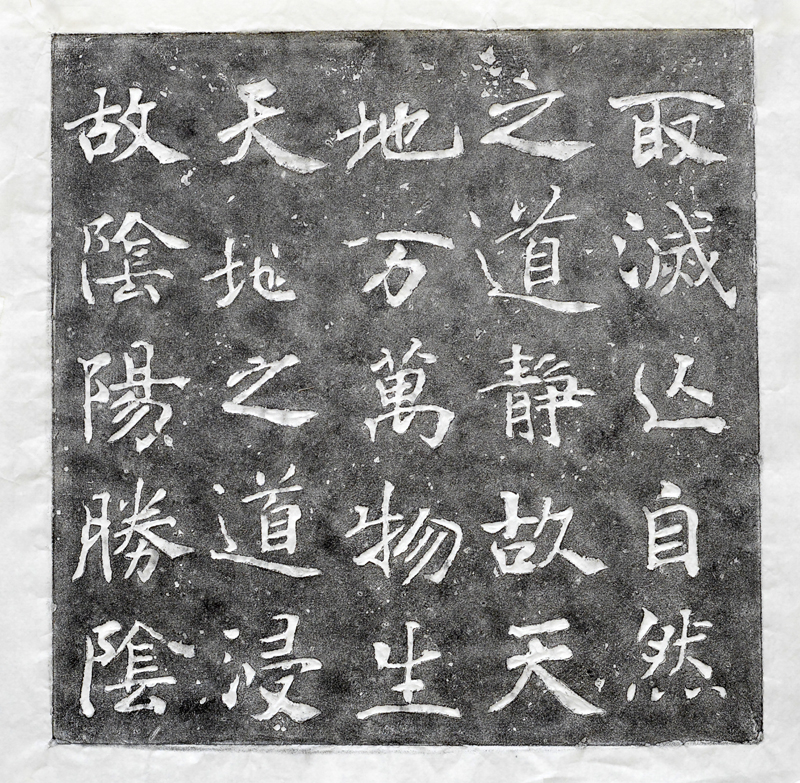 取滅亾自然
之道靜故天
地万萬物生
天地之道浸
故陰陽勝陰